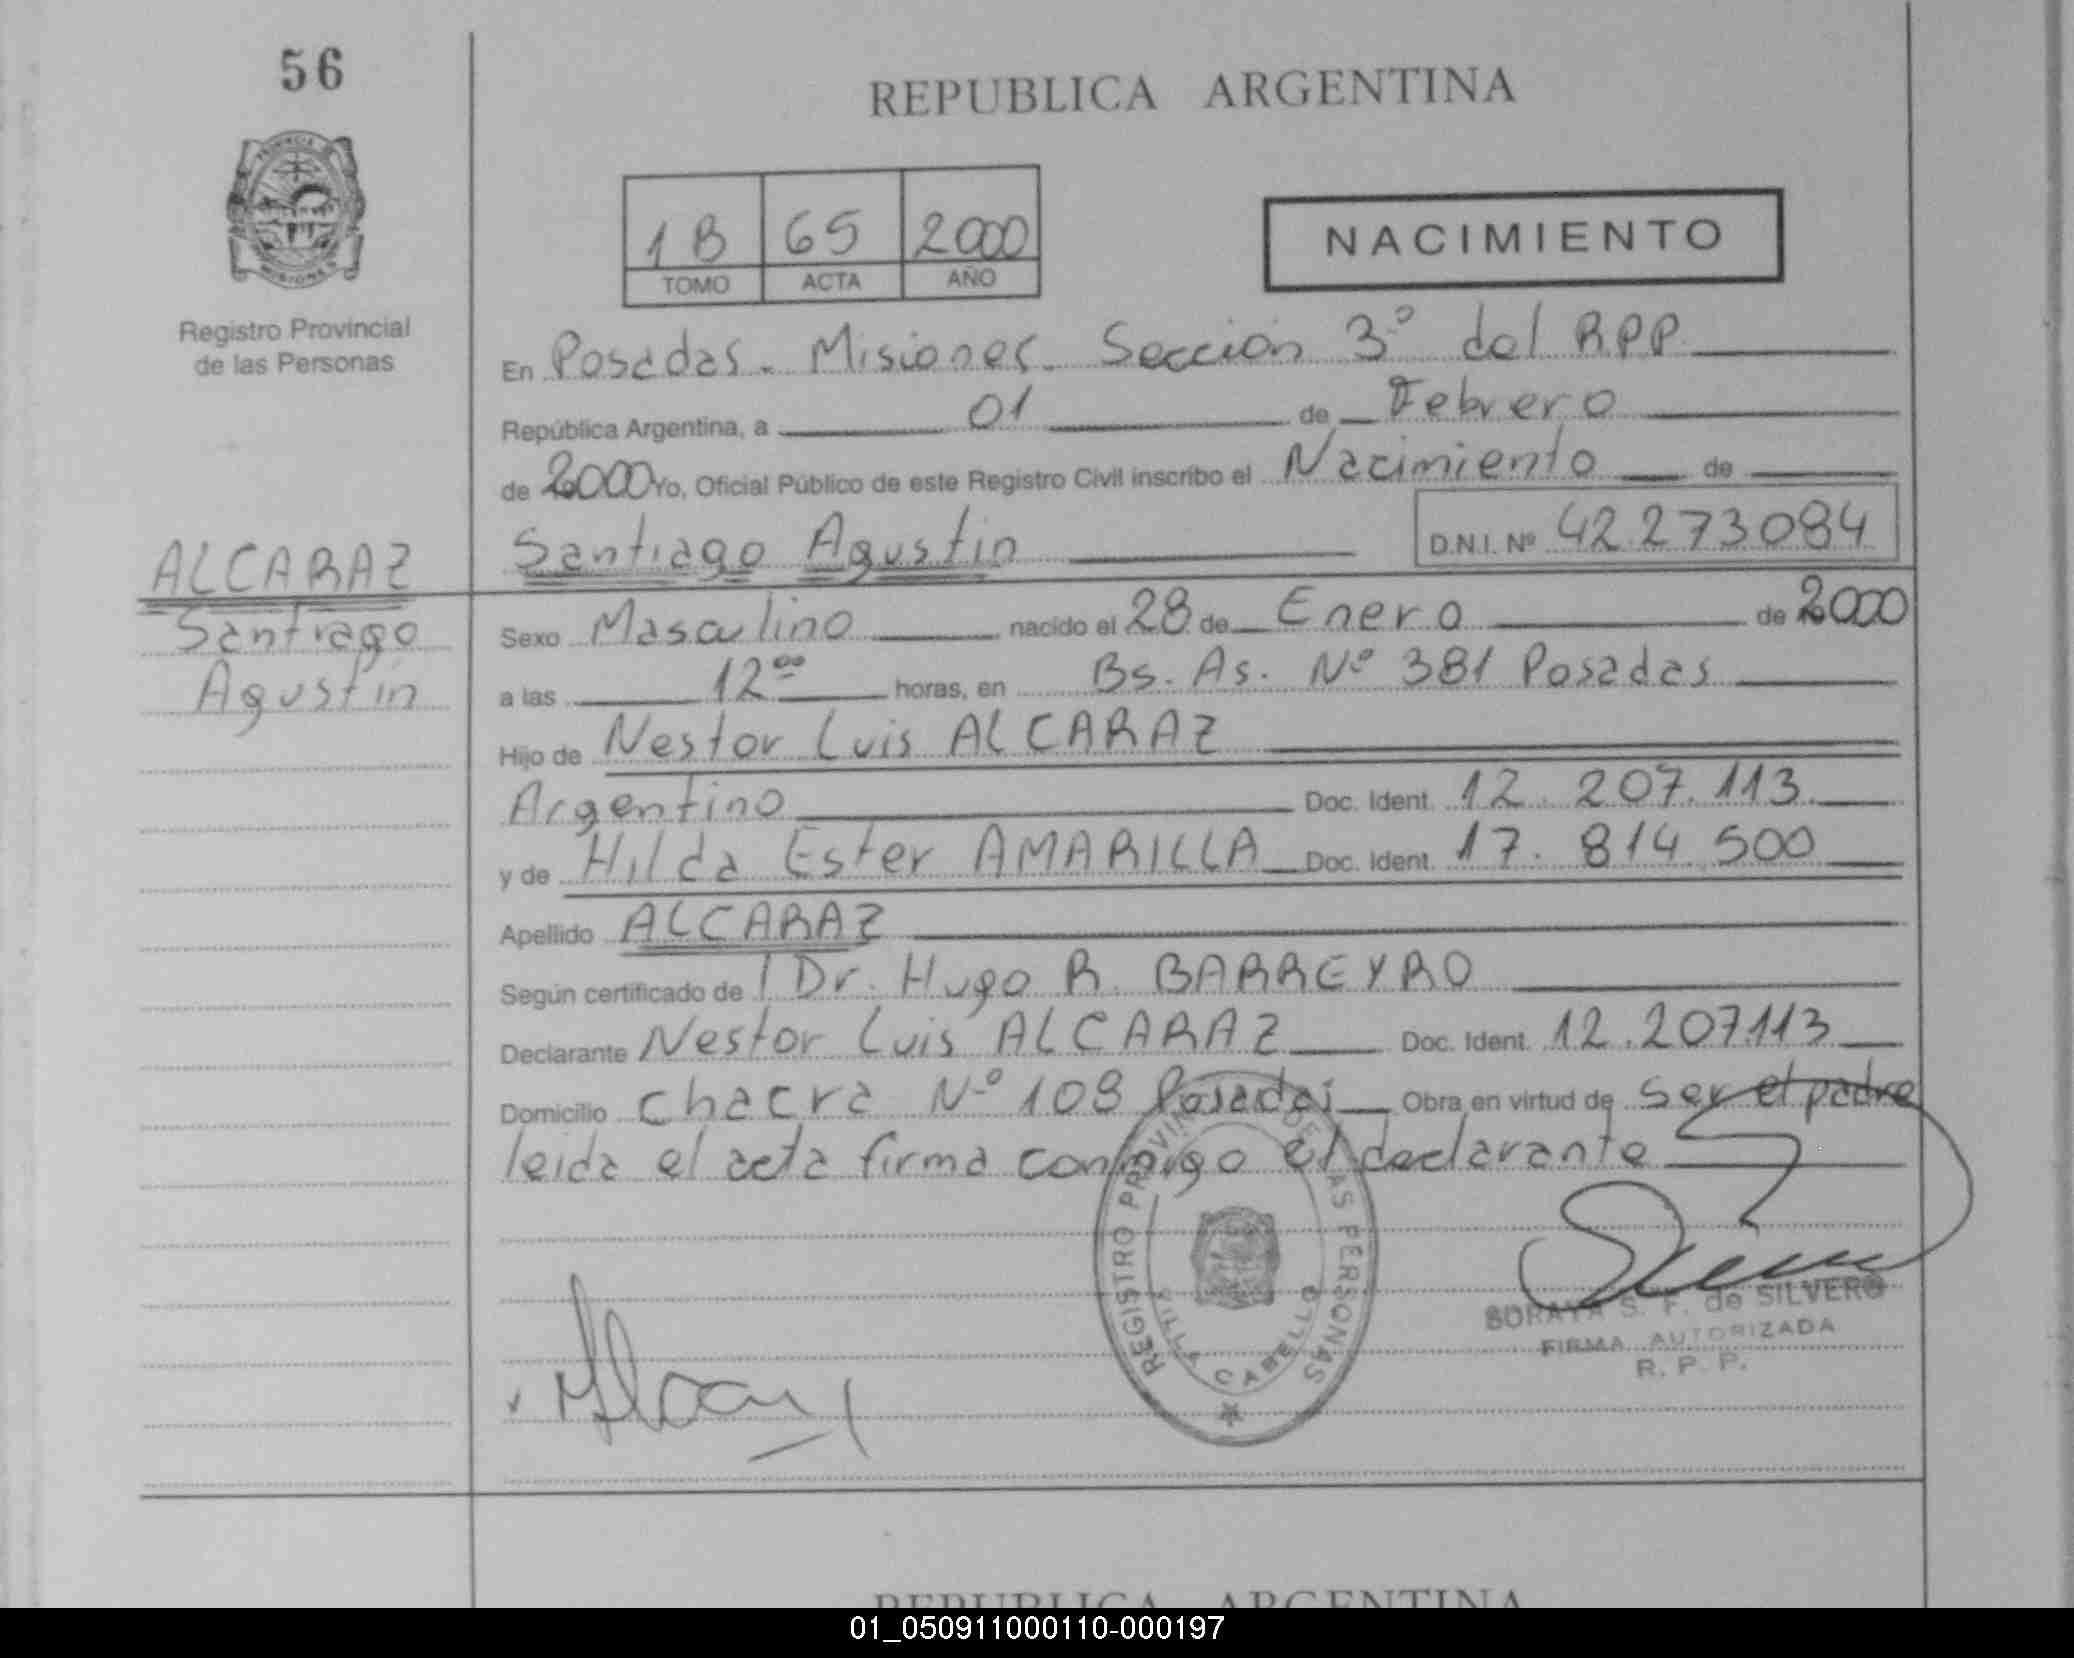 56
REPUBLICA ARGENTINA
PROVINCIA DE
MISIONES
Registro Provincial
de las Personas
1B 65 2000
TOMO ACTA AÑO
NACIMIENTO
En Posadas. Misiones. Sección 3º del RPP
República Argentina, a 01 de Febrero
de 2000 Yo, Oficial Público de este Registro Civil inscribo el Nacimiento de
Santiago Agustin D.N.I. Nº 42 273084
ALCARAZ
Santiago
Agustin
Sexo Masculino nacido el 28 de Enero de 2000
a las 12ºº horas, en Bs. As. Nº 381 Posadas
Hijo de Nestor Luis ALCARAZ
Argentino Doc. Ident. 12. 207. 113
y de Hilda Ester AMARILLA Doc. Ident. 17. 814 500
Apellido ALCARAZ
Según certificado de Dr. Hugo R. BARREYRO
Declarante Nestor Luis ALCARAZ Doc. Ident. 12.207.113
Domicilio Chacra Nº 109 Posadas Obra en virtud de ser el padre
leida el acta firma conmigo el declarante
REGISTRO PROVINCIAL DE LAS PERSONAS
VILLA CABELLO
SORAYA S. F. de SILVERO
FIRMA AUTORIZADA
R. P. P.
REPUBLICA ARGENTINA
01_050911000110-000197